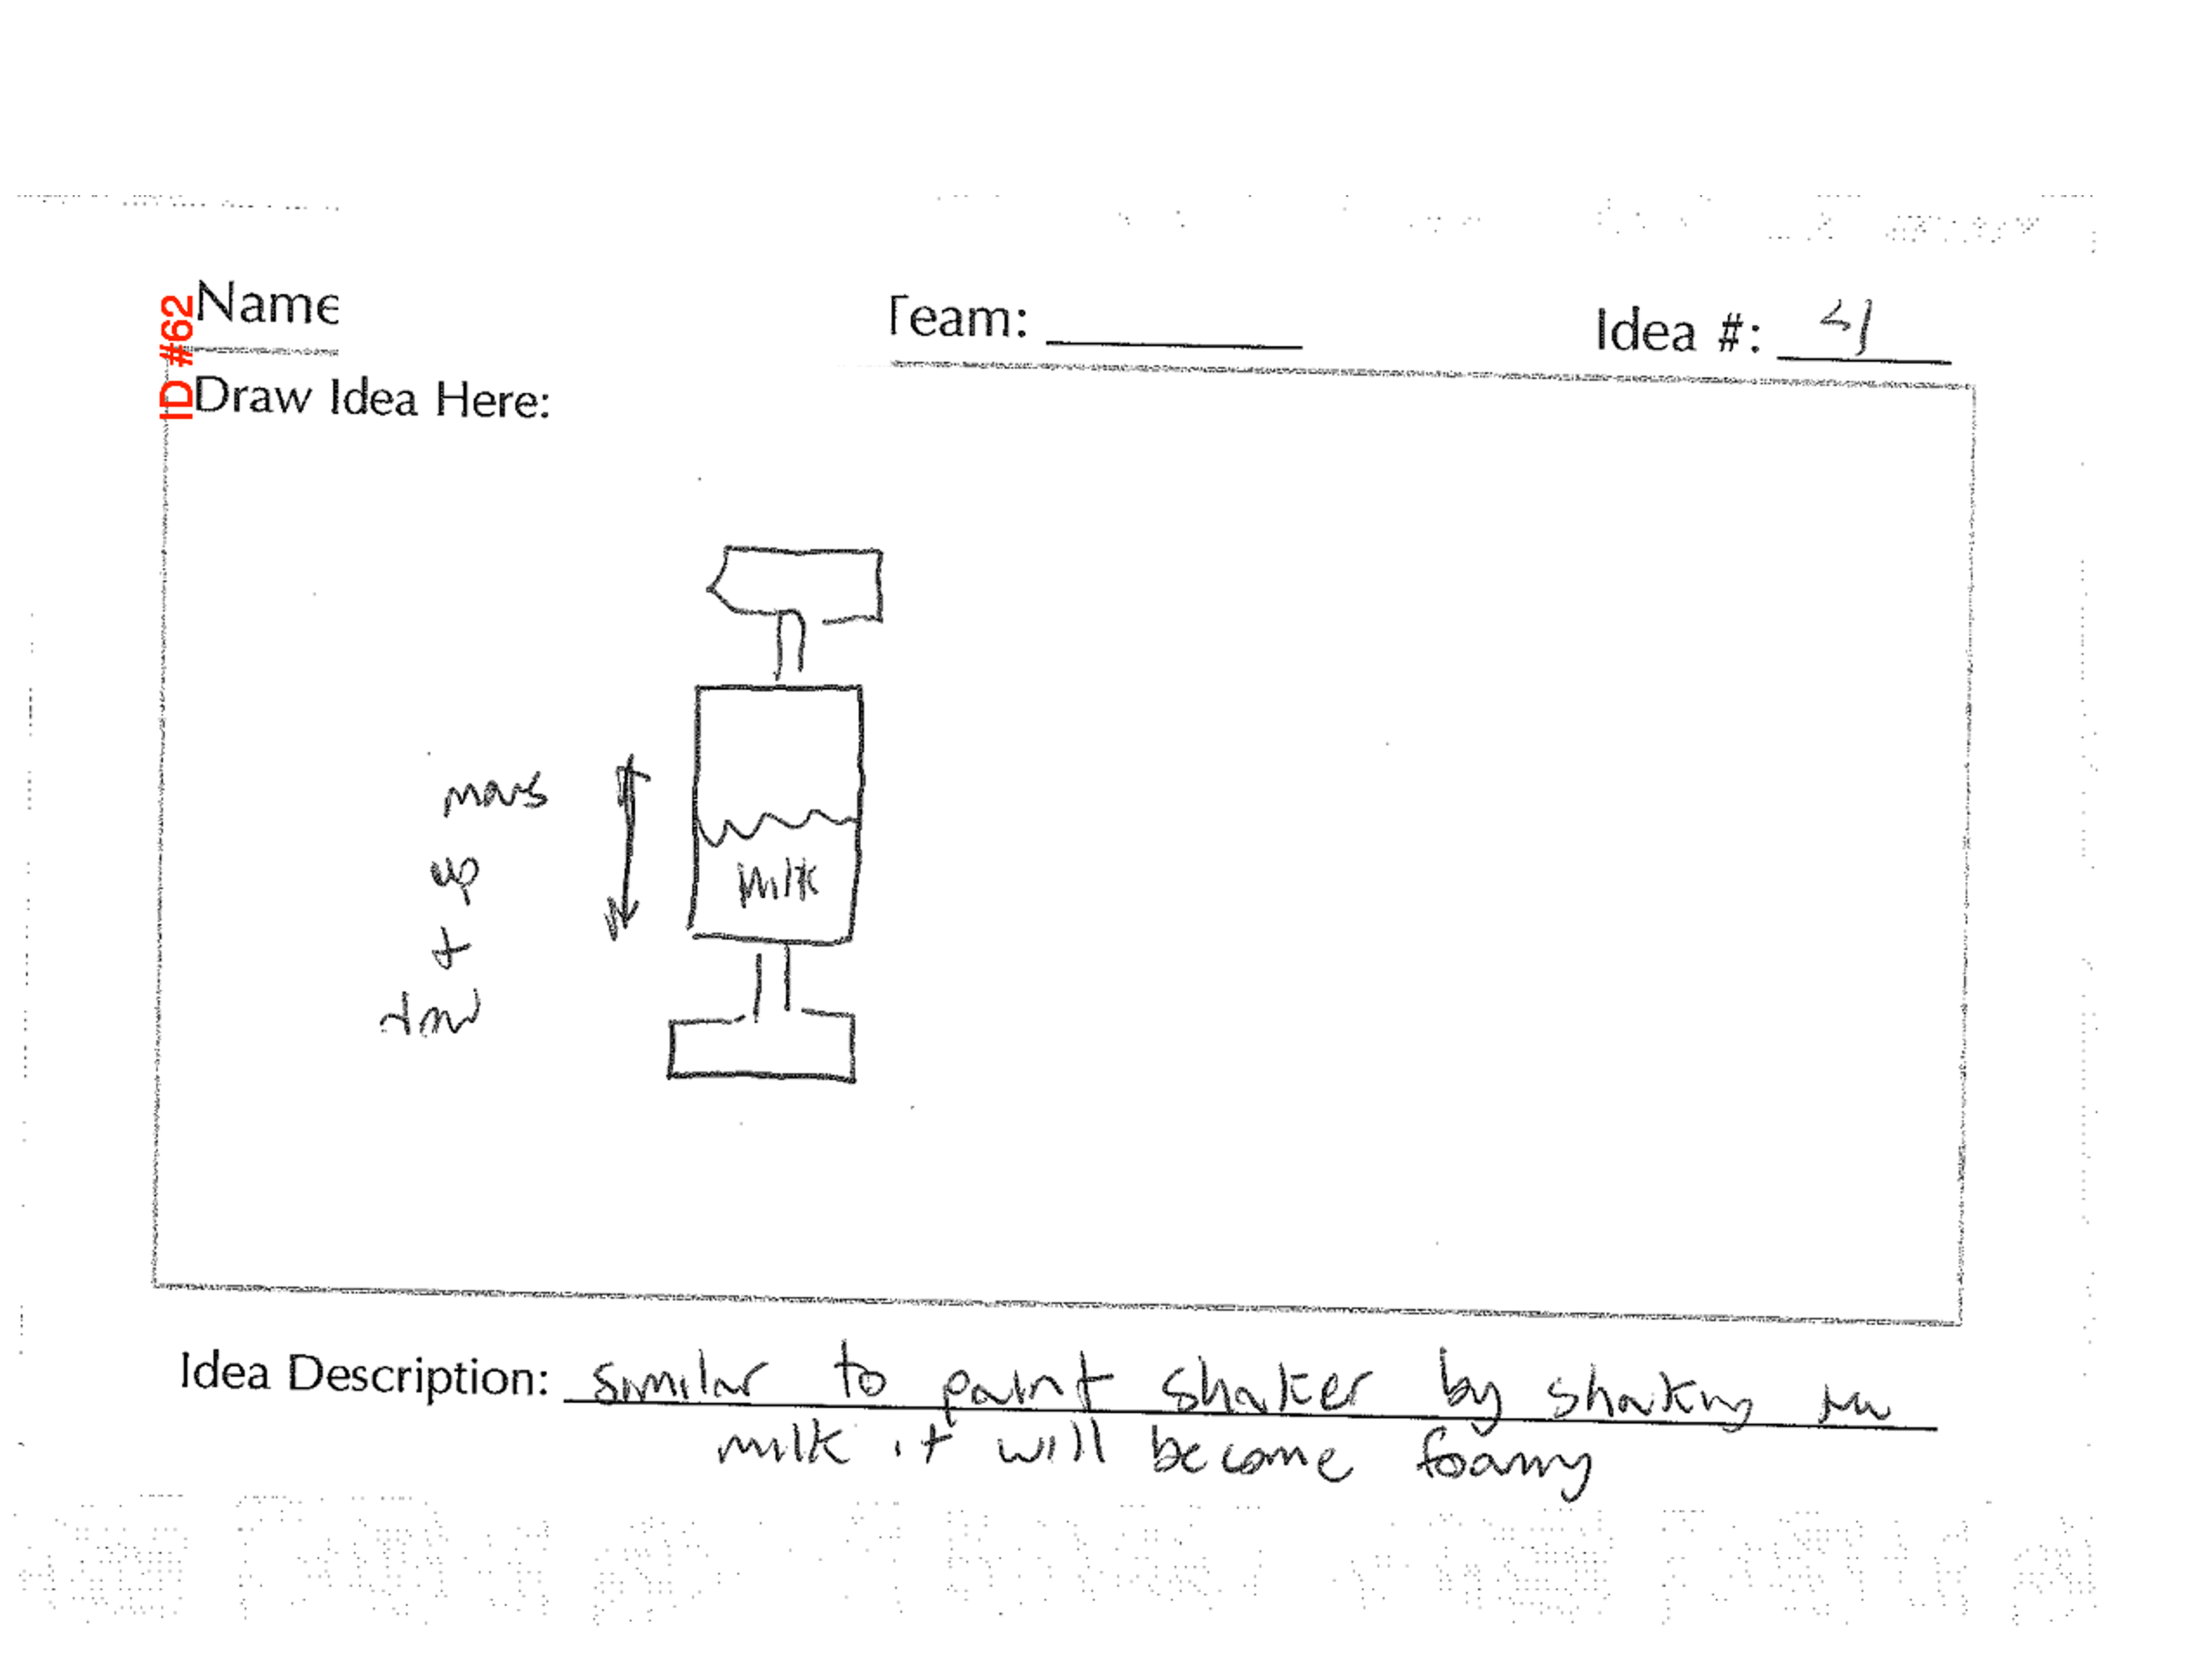 ID #62
Name
Team:
Idea #: 4
Draw Idea Here:
moves
up
+
down
Milk
Idea Description: similar to paint shaker by shaking the
milk it will become foamy